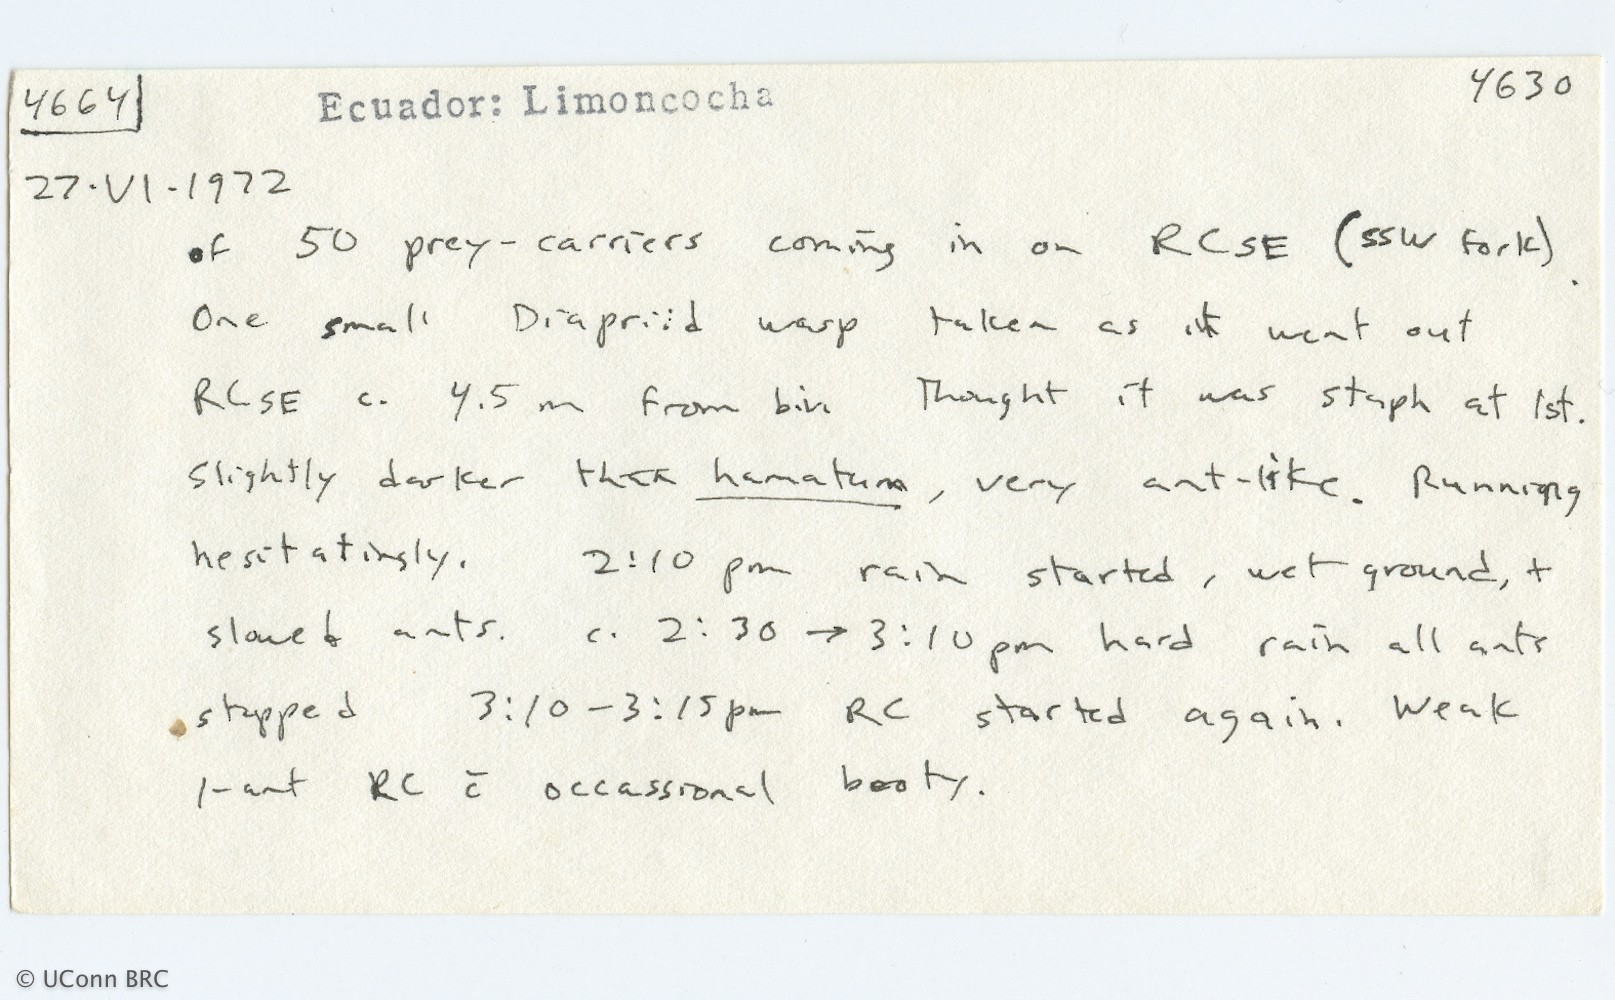 4664 Ecuador: Limoncocha 4630
27·VI·1972
of 50 prey-carriers coming in on RCSE (SSW fork).
One small Diapriid wasp taken as it went out
RCSE c. 4.5 m from biv. Thought it was staph at 1st.
Slightly darker than hamatum, very ant-like. Running
hesitatingly. 2:10 pm rain started, wet ground, +
slowed ants. c. 2:30 → 3:10 pm hard rain all ants
stopped 3:10-3:15 pm RC started again. Weak
1-ant RC c̄ occassional booty.
© UConn BRC